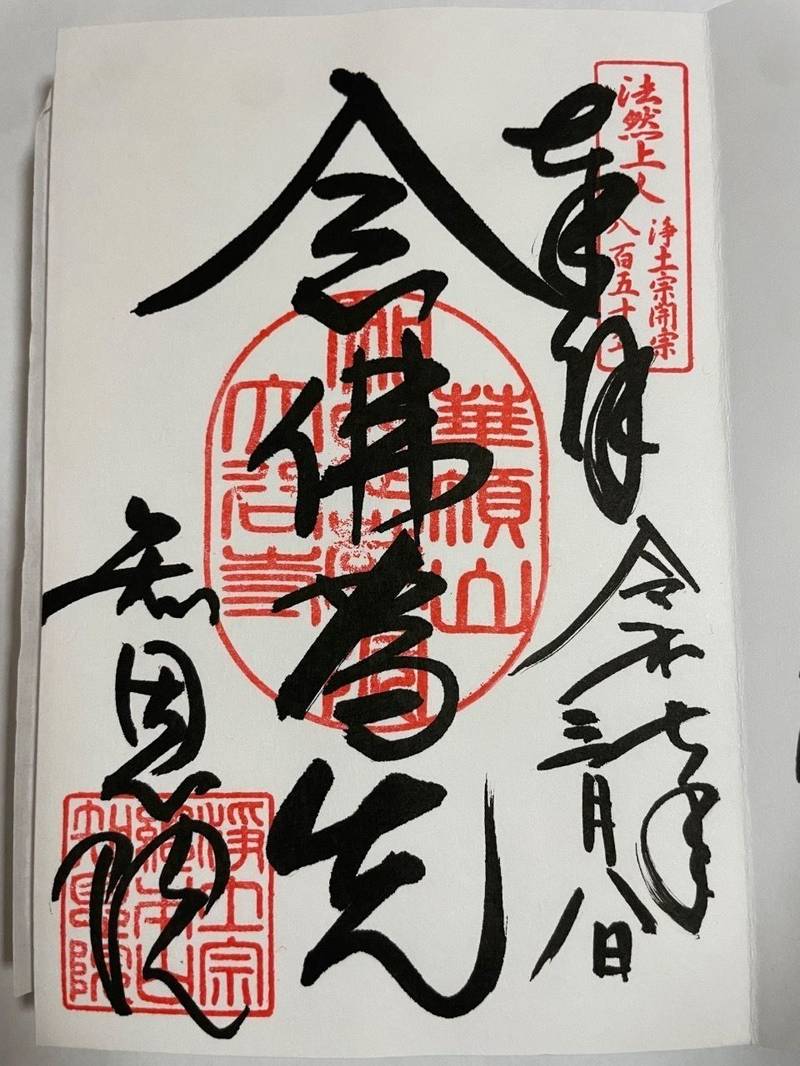 奉拝
法然上人
浄土宗開宗
八百五十年
令和七年
三月八日
念佛為先
華頂山
大谷寺
知恩院
浄土宗
総本山
知恩院